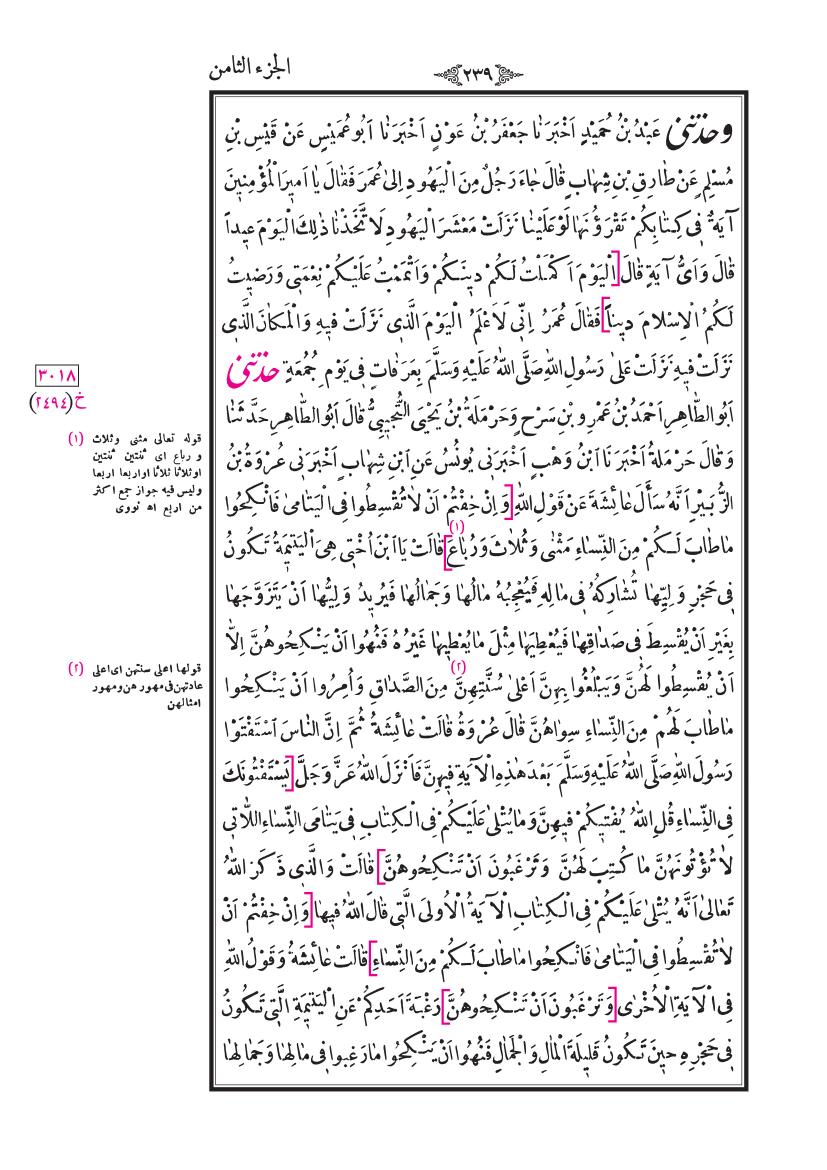 ٢٣٩
الجزء الثامن
وحدثنى عَبْدُ بْنُ حُمَيْدٍ اَخْبَرَنَا جَعْفَرُ بْنُ عَوْنٍ اَخْبَرَنَا اَبُو عُمَيْسٍ عَنْ قَيْسِ بْنِ
مُسْلِمٍ عَنْ طَارِقِ بْنِ شِهَابٍ قَالَ جَاءَ رَجُلٌ مِنَ الْيَهُودِ اِلىٰ عُمَرَ فَقَالَ يَا اَمِيرَ الْمُؤْمِنِينَ
آيَةٌ فِى كِتَابِكُمْ تَقْرَؤُنَهَا لَوْ عَلَيْنَا نَزَلَتْ مَعْشَرَ الْيَهُودِ لَاتَّخَذْنَا ذٰلِكَ الْيَوْمَ عِيداً
قَالَ وَاَىُّ آيَةٍ قَالَ [اَلْيَوْمَ اَكْمَلْتُ لَكُمْ دِينَكُمْ وَاَتْمَمْتُ عَلَيْكُمْ نِعْمَتِى وَرَضِيتُ
لَكُمُ الْاِسْلَامَ دِيناً] فَقَالَ عُمَرُ اِنِّى لَاَعْلَمُ الْيَوْمَ الَّذِى نَزَلَتْ فِيهِ وَالْمَكَانَ الَّذِى
نَزَلَتْ فِيهِ نَزَلَتْ عَلىٰ رَسُولِ اللهِ صَلَّى اللهُ عَلَيْهِ وَسَلَّمَ بِعَرَفَاتٍ فِى يَوْمِ جُمُعَةٍ حدثنى
اَبُو الطَّاهِرِ اَحْمَدُ بْنُ عَمْرِو بْنِ سَرْحٍ وَحَرْمَلَةُ بْنُ يَحْيَى التُّجِيبِىُّ قَالَ اَبُو الطَّاهِرِ حَدَّثَنَا
وَقَالَ حَرْمَلَةُ اَخْبَرَنَا ابْنُ وَهْبٍ اَخْبَرَنِى يُونُسُ عَنِ ابْنِ شِهَابٍ اَخْبَرَنِى عُرْوَةُ بْنُ
الزُّبَيْرِ اَنَّهُ سَأَلَ عَائِشَةَ عَنْ قَوْلِ اللهِ [وَاِنْ خِفْتُمْ اَنْ لَاتُقْسِطُوا فِى الْيَتَامىٰ فَانْكِحُوا
مَا طَابَ لَكُمْ مِنَ النِّسَاءِ مَثْنٰى وَثُلَاثَ وَرُبَاعَ] (١) قَالَتْ يَا ابْنَ اُخْتِى هِىَ الْيَتِيمَةُ تَكُونُ
فِى حَجْرِ وَلِيِّهَا تُشَارِكُهُ فِى مَالِهِ فَيُعْجِبُهُ مَالُهَا وَجَمَالُهَا فَيُرِيدُ وَلِيُّهَا اَنْ يَتَزَوَّجَهَا
بِغَيْرِ اَنْ يُقْسِطَ فِى صَدَاقِهَا فَيُعْطِيَهَا مِثْلَ مَا يُعْطِيهَا غَيْرُهُ فَنُهُوا اَنْ يَنْكِحُوهُنَّ اِلَّا
اَنْ يُقْسِطُوا لَهُنَّ وَيَبْلُغُوا بِهِنَّ اَعْلىٰ سُنَّتِهِنَّ (٢) مِنَ الصَّدَاقِ وَاُمِرُوا اَنْ يَنْكِحُوا
مَا طَابَ لَهُمْ مِنَ النِّسَاءِ سِوَاهُنَّ قَالَ عُرْوَةُ قَالَتْ عَائِشَةُ ثُمَّ اِنَّ النَّاسَ اسْتَفْتَوْا
رَسُولَ اللهِ صَلَّى اللهُ عَلَيْهِ وَسَلَّمَ بَعْدَ هٰذِهِ الْآيَةِ فِيهِنَّ فَاَنْزَلَ اللهُ عَزَّ وَجَلَّ [يَسْتَفْتُونَكَ
فِى النِّسَاءِ قُلِ اللهُ يُفْتِيكُمْ فِيهِنَّ وَمَا يُتْلىٰ عَلَيْكُمْ فِى الْكِتَابِ فِى يَتَامَى النِّسَاءِ اللَّاتِى
لَا تُؤْتُونَهُنَّ مَا كُتِبَ لَهُنَّ وَتَرْغَبُونَ اَنْ تَنْكِحُوهُنَّ] قَالَتْ وَالَّذِى ذَكَرَ اللهُ
تَعَالىٰ اَنَّهُ يُتْلىٰ عَلَيْكُمْ فِى الْكِتَابِ الْآيَةُ الْاُولَى الَّتِى قَالَ اللهُ فِيهَا [وَاِنْ خِفْتُمْ اَنْ
لَاتُقْسِطُوا فِى الْيَتَامىٰ فَانْكِحُوا مَا طَابَ لَكُمْ مِنَ النِّسَاءِ] قَالَتْ عَائِشَةُ وَقَوْلُ اللهِ
فِى الْآيَةِ الْاُخْرٰى [وَتَرْغَبُونَ اَنْ تَنْكِحُوهُنَّ] رَغْبَةَ اَحَدِكُمْ عَنِ الْيَتِيمَةِ الَّتِى تَكُونُ
فِى حَجْرِهِ حِينَ تَكُونُ قَلِيلَةَ الْمَالِ وَالْجَمَالِ فَنُهُوا اَنْ يَنْكِحُوا مَا رَغِبُوا فِى مَالِهَا وَجَمَالِهَا
٣٠١٨
خ (٢٤٩٤)
(١) قوله تعالى مثنى وثلاث
و رباع اى ثنتين ثنتين
اوثلاثا ثلاثا اواربعا اربعا
وليس فيه جواز جمع اكثر
من اربع اه نووى
(٢) قولها اعلى سنتهن اى اعلى
عادتهن فى مهورهن ومهور
امثالهن